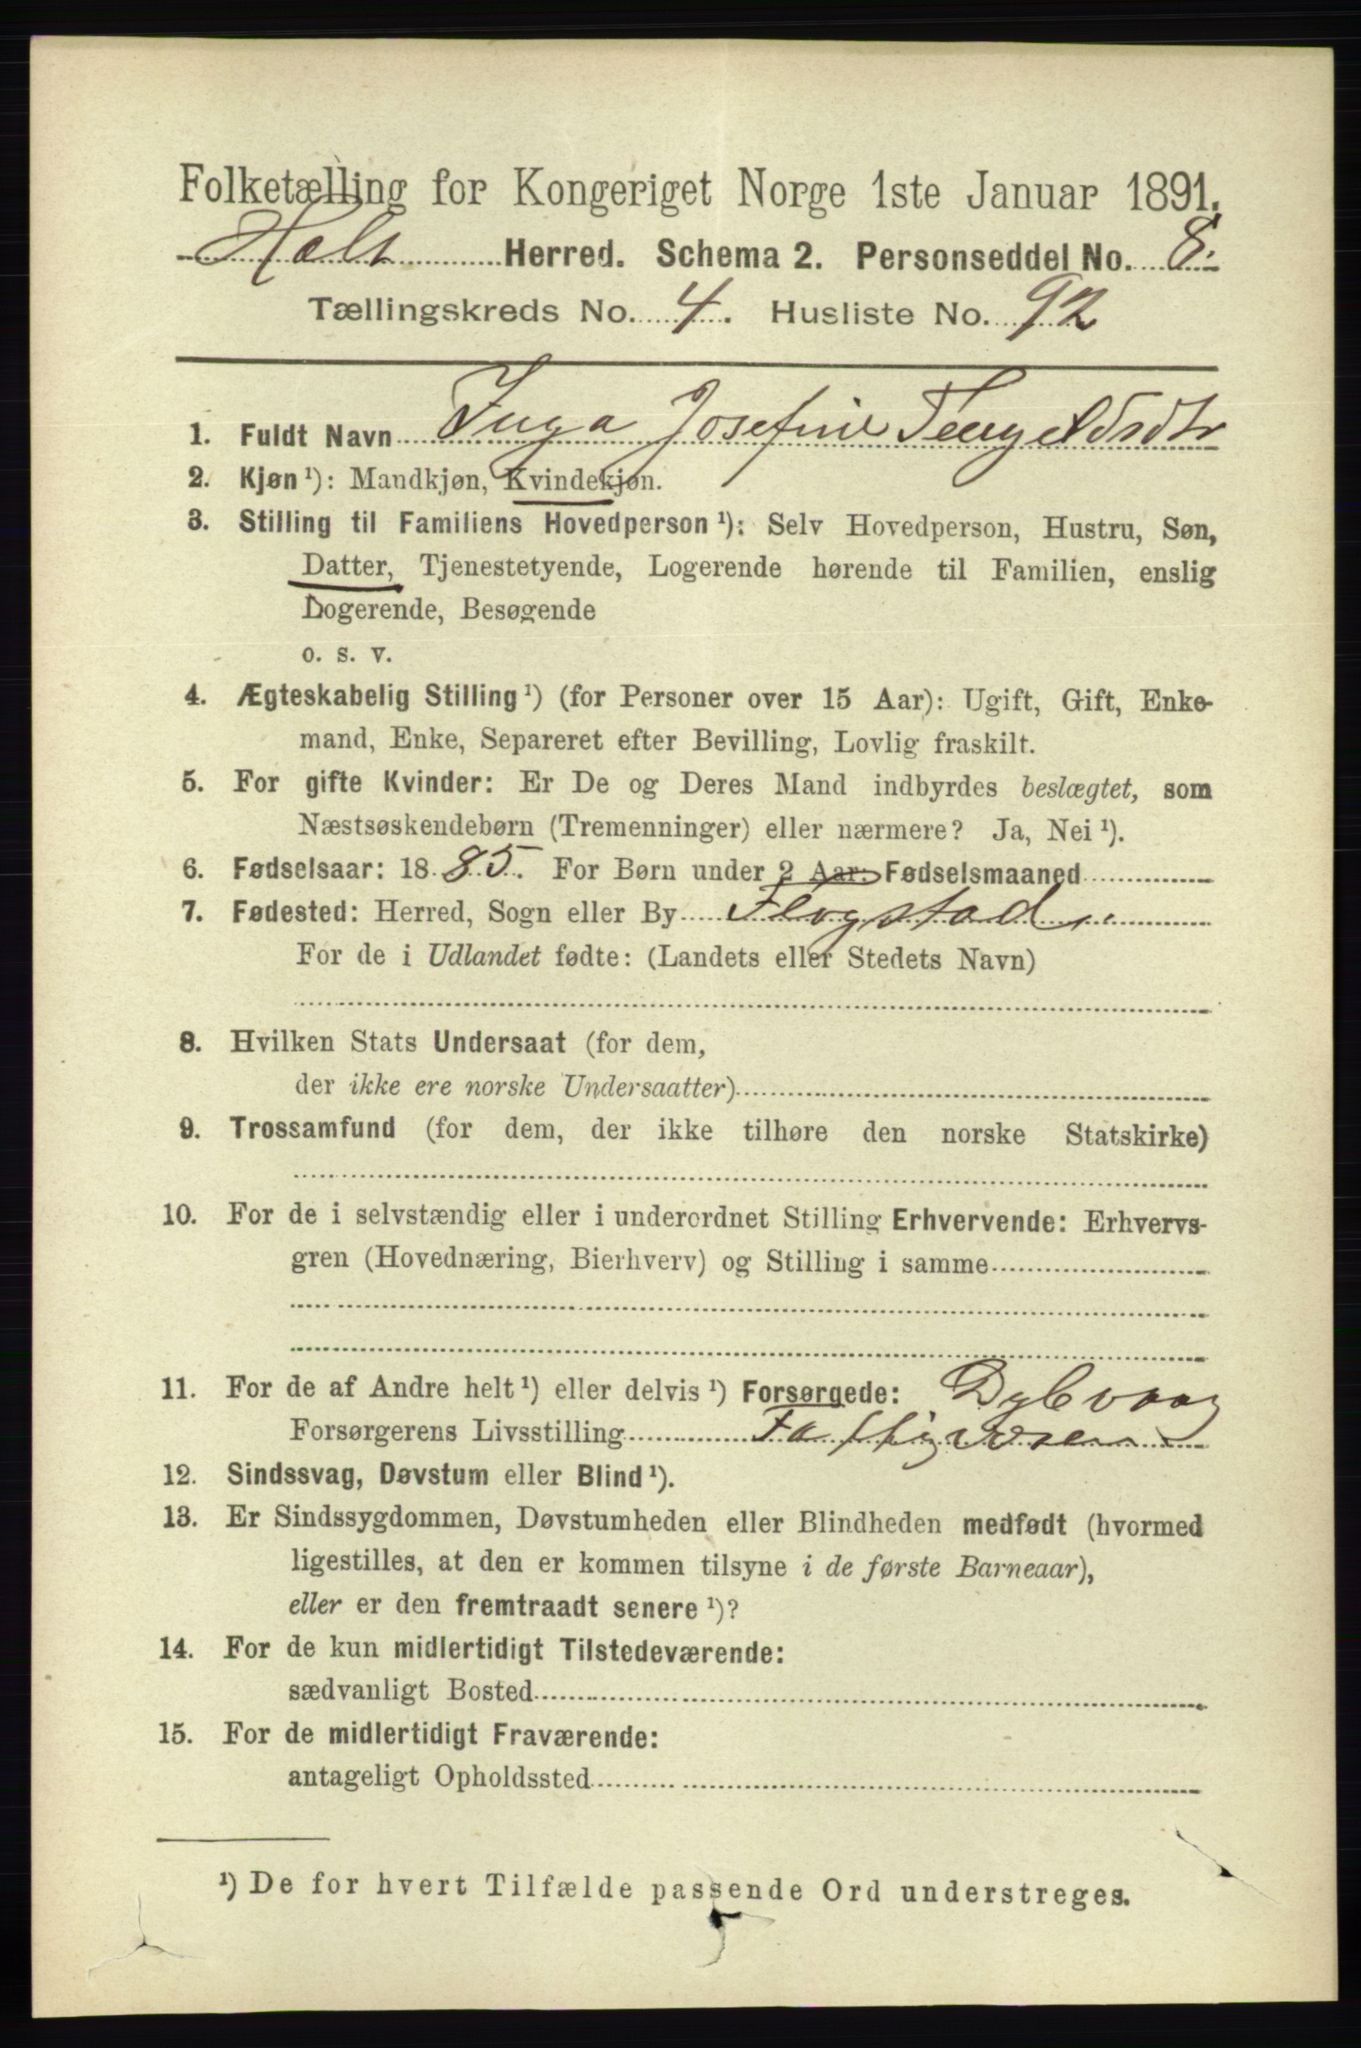 Folketælling for Kongeriget Norge 1ste Januar 1891.
Holt Herred. Schema 2. Personseddel No. 8.
Tællingskreds No. 4. Husliste No. 92
1. Fuldt Navn Inga Josefine Tengeldsdtr
2. Kjøn ¹): Mandkjøn, Kvindekjøn.
3. Stilling til Familiens Hovedperson ¹): Selv Hovedperson, Hustru, Søn,
Datter, Tjenestetyende, Logerende hørende til Familien, enslig
Logerende, Besøgende
o. s. v.
4. Ægteskabelig Stilling ¹) (for Personer over 15 Aar): Ugift, Gift, Enke-
mand, Enke, Separeret efter Bevilling, Lovlig fraskilt.
5. For gifte Kvinder: Er De og Deres Mand indbyrdes beslægtet, som
Næstsøskendebørn (Tremenninger) eller nærmere? Ja, Nei ¹).
6. Fødselsaar: 1885. For Børn under 2 Aar: Fødselsmaaned
7. Fødested: Herred, Sogn eller By Flogstad
For de i Udlandet fødte: (Landets eller Stedets Navn)
8. Hvilken Stats Undersaat (for dem,
der ikke ere norske Undersaatter)
9. Trossamfund (for dem, der ikke tilhøre den norske Statskirke)
10. For de i selvstændig eller i underordnet Stilling Erhvervende: Erhvervs-
gren (Hovednæring, Bierhverv) og Stilling i samme
11. For de af Andre helt ¹) eller delvis ¹) Forsørgede: Dybvaag
Forsørgerens Livsstilling Fattigvæsen
12. Sindssvag, Døvstum eller Blind ¹).
13. Er Sindssygdommen, Døvstumheden eller Blindheden medfødt (hvormed
ligestilles, at den er kommen tilsyne i de første Barneaar),
eller er den fremtraadt senere ¹)?
14. For de kun midlertidigt Tilstedeværende:
sædvanligt Bosted
15. For de midlertidigt Fraværende:
antageligt Opholdssted
¹) De for hvert Tilfælde passende Ord understreges.